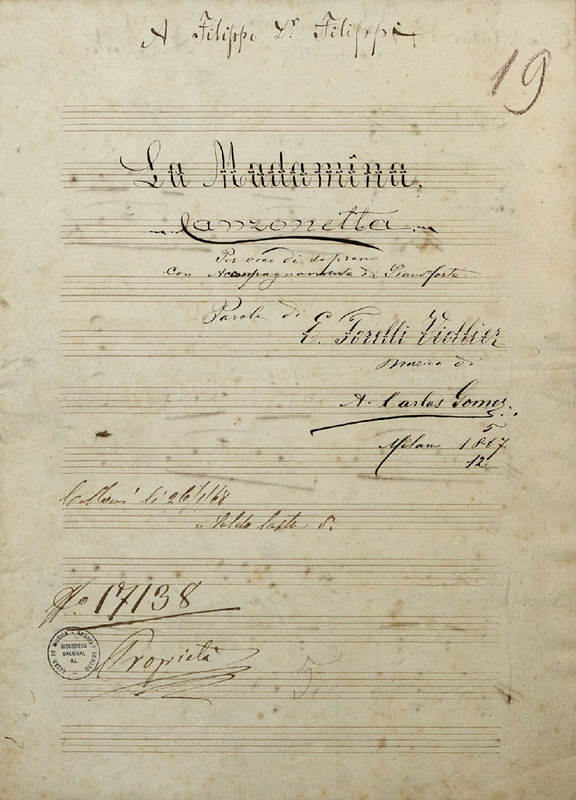 A Filippo Dr Filippi
19
La Madamina.
Canzonetta
Per voce di sopran
Con Accompagnamento di Pianoforte
Parole di
E. Torelli Viollier
musica di
A. Carlos Gomez
5
Milano 1867
12
li 26/1/68
No 17138
Proprietà
BIBLIOTECA
NACIONAL
RJ.
5